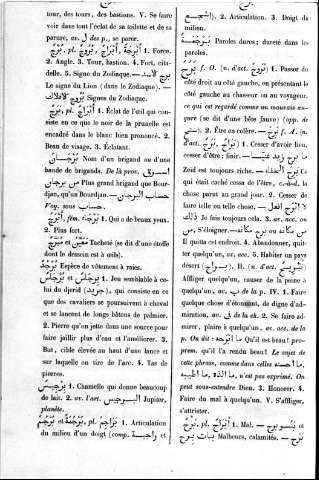 tour, des tours, des bastions. V. Se faire
voir dans tout l'éclat de sa toilette et de sa
parure, av. ب des p., se parer.
بُرْج pl. بُرُوج, أَبْرَاج 1. Force.
2. Angle. 3. Tour, bastion. 4. Fort, cita-
delle. 5. Signe du Zodiaque. — برج الاسد
Le signe du Lion (dans le Zodiaque). —
بروج الافلاك Signes du Zodiaque.
بَرَج, pl. أَبْرَاج 1. Éclat de l'œil qui con-
siste en ce que le noir de la prunelle est
encadré dans le blanc bien prononcé. 2.
Beau de visage. 3. Éclatant.
بُرْجَان Nom d'un brigand ou d'une
bande de brigands. De là prov. اسرق
من برجان Plus grand brigand que Bour-
djan, qu'un Bourdjan. — حساب البرجان
Voy. sous حساب.
أَبْرَج, fém. بَرْجَاء 1. Qui a de beaux yeux.
2. Plus fort.
Tacheté (se dit d'une étoffe
dont le dessin est à œils).
بُرْجُد Espèce de vêtement à raies.
بُرْجَاس et بِرْجَاس 1. Jeu semblable à ce-
lui du djerid (جريد), qui consiste en ce
que des cavaliers se poursuivent à cheval
et se lancent de longs bâtons de palmier.
2. Pierre qu'on jette dans une source pour
faire jaillir plus d'eau et l'améliorer. 3.
But, cible élevée au haut d'une lance et
sur laquelle on tire de l'arc. 4. Tas de
pierres.
بِرْجِيس 1. Chamelle qui donne beaucoup
de lait. 2. av. l'art. البرجيس Jupiter,
planète.
بُرْجُمَة, pl. بَرَاجِم 1. Articulation
du milieu d'un doigt (comp. راجبة et
اشجع). 2. Articulation. 3. Doigt du
milieu.
بَرْجَمَة Paroles dures; dureté dans les
paroles.
بَرَح f. O. (n. d'act. بُرُوح) 1. Passer du
côté droit au côté gauche, en présentant le
côté gauche au chasseur ou au voyageur.
ce qui est regardé comme un mauvais au-
gure (se dit d'une bête fauve) (opp. de
سنح). 2. Être en colère. — بَرِحَ f. A. (n.
d'act. بَرَاح) 1. Cesser d'avoir lieu,
cesser d'être; finir. — ما برح زيد غنيا
Zeïd est toujours riche. — برح الخفاء Ce
qui était caché cessa de l'être, c.-à-d., la
chose parut au grand jour. 2. Cesser de
faire telle ou telle chose. — لا ابرح افعل
ذلك Je fais toujours cela. 3. av. acc. ou
من, S'éloigner. — برح مكانه ou من مكانه
Il quitta cet endroit. 4. Abandonner, quit-
ter quelqu'un, av. acc. 5. Habiter un pays
désert (براح). II. (n. d'act. تَبْرِيح)
Affliger quelqu'un, causer de la peine à
quelqu'un, av. ب de la p. IV. 1. Faire
quelque chose d'étonnant, de digne d'ad-
miration, av. ب de la ch. 2. Se faire ad-
mirer, plaire à quelqu'un, av. acc. de la
p. On dit : ما ابرحه Qu'il est beau! pro-
prem. qu'il l'a rendu beau! Le sujet de
cette phrase, comme dans celles ما احسنه
ما الذه, ما اطيبه, n'est pas exprimé. On
peut sous-entendre Dieu. 3. Honorer. 4.
Faire du mal à quelqu'un. V. S'affliger,
s'attrister.
بَرْح, pl. بُرُوح 1. Mal. —
بنات برح Malheurs, calamités. —